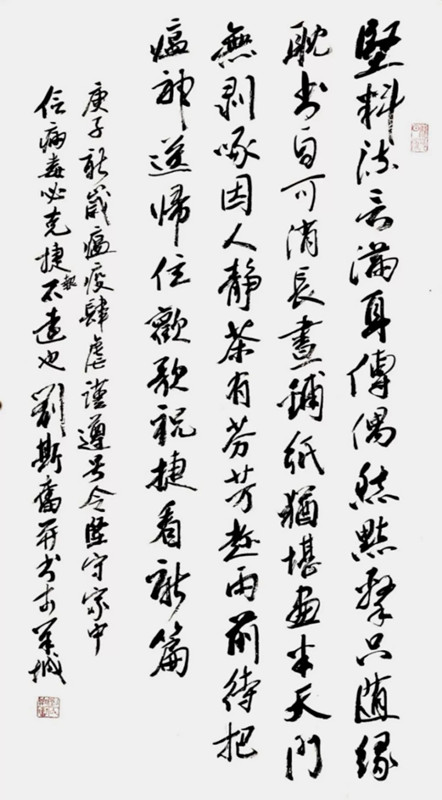 料流言滿耳傳偶然點擊只隨緣
耽書自可消長晝鋪紙猶堪畫半天門
無剝啄因人靜茶有芬芳趁雨前待把
瘟神送歸歡歌祝捷看新篇
庚子新歲瘟疫肆虐謹遵号令堅守家中
信病毒必克捷報不遠也劉斯奮并書於羊城